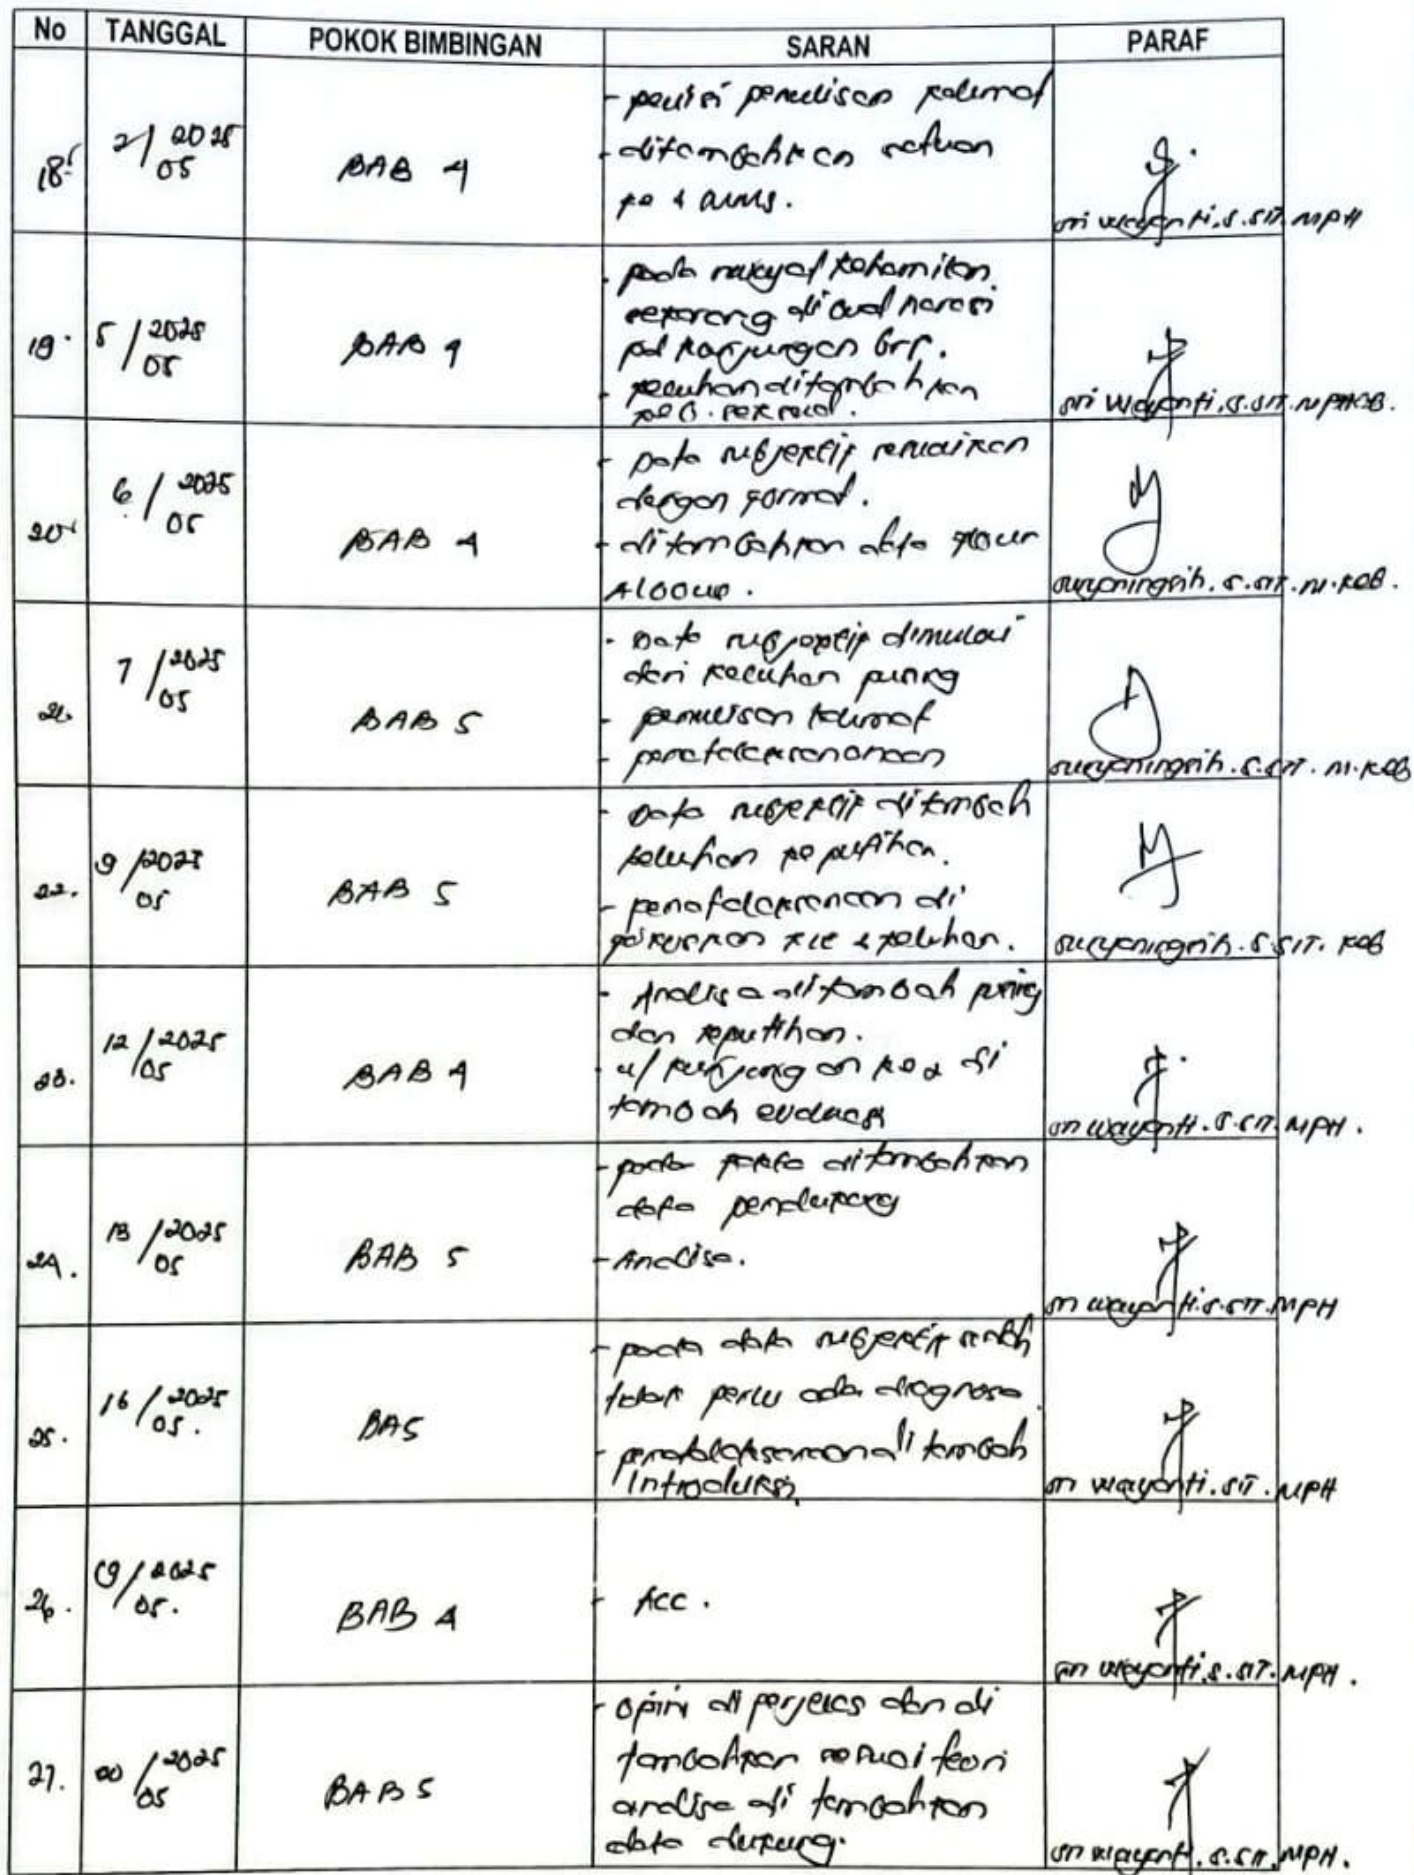 No TANGGAL POKOK BIMBINGAN SARAN PARAF
18. 2/2025 05 BAB 4
- penulisan kalimat
- ditambahkan satuan
Sri Wayanti.S.SiT.MPH
19. 5/2025 05 BAB 4
pada riwayat kehamilan
sekarang di narasi
ditambahkan
Sri Wayanti.S.SiT.MPH
20. 6/2025 05 BAB 4
- Data subjektif sesuaikan
dengan format.
- ditambahkan data
Suryaningsih.S.SiT.M.KEB.
21. 7/2025 05 BAB 5
- Data subjektif dimulai
dari keluhan pusing
- penulisan kalimat
- penatalaksanaan
Suryaningsih.S.SiT.M.KEB
22. 9/2025 05 BAB 5
- Data subjektif ditambah
keluhan keputihan.
- penatalaksanaan di
fokuskan KIE & keluhan.
Suryaningsih.S.SIT.KEB
23. 12/2025 05 BAB 4
- Analisa ditambah pusing
dan keputihan.
- u/ kunjungan ke 2 di
tambah evaluasi
Sri Wayanti.S.SiT.MPH.
24. 13/2025 05 BAB 5
- pada fakta ditambahkan
data pendukung
- Analisa.
Sri Wayanti.S.SiT.MPH
25. 16/2025 05. BAB 5
- pada data subjektif
tidak perlu ada diagnosa.
- penatalaksanaan di tambah
Introduksi
Sri Wayanti.SiT.MPH
26. 19/2025 05. BAB 4
- Acc.
Sri Wayanti.S.SiT.MPH.
27. 20/2025 05 BAB 5
- Opini di perjelas dan di
tambahkan sesuai teori
analisa di tambahkan
data dukung.
Sri Wayanti.S.SiT.MPH.